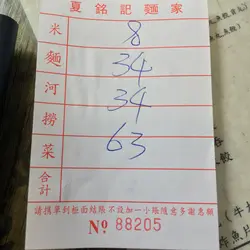 夏銘記麵家
米 8
麵 34
河 34
撈 63
菜
合計
請攜單到柜面結賬不設加一小賬隨意多謝惠顧
№ 88205